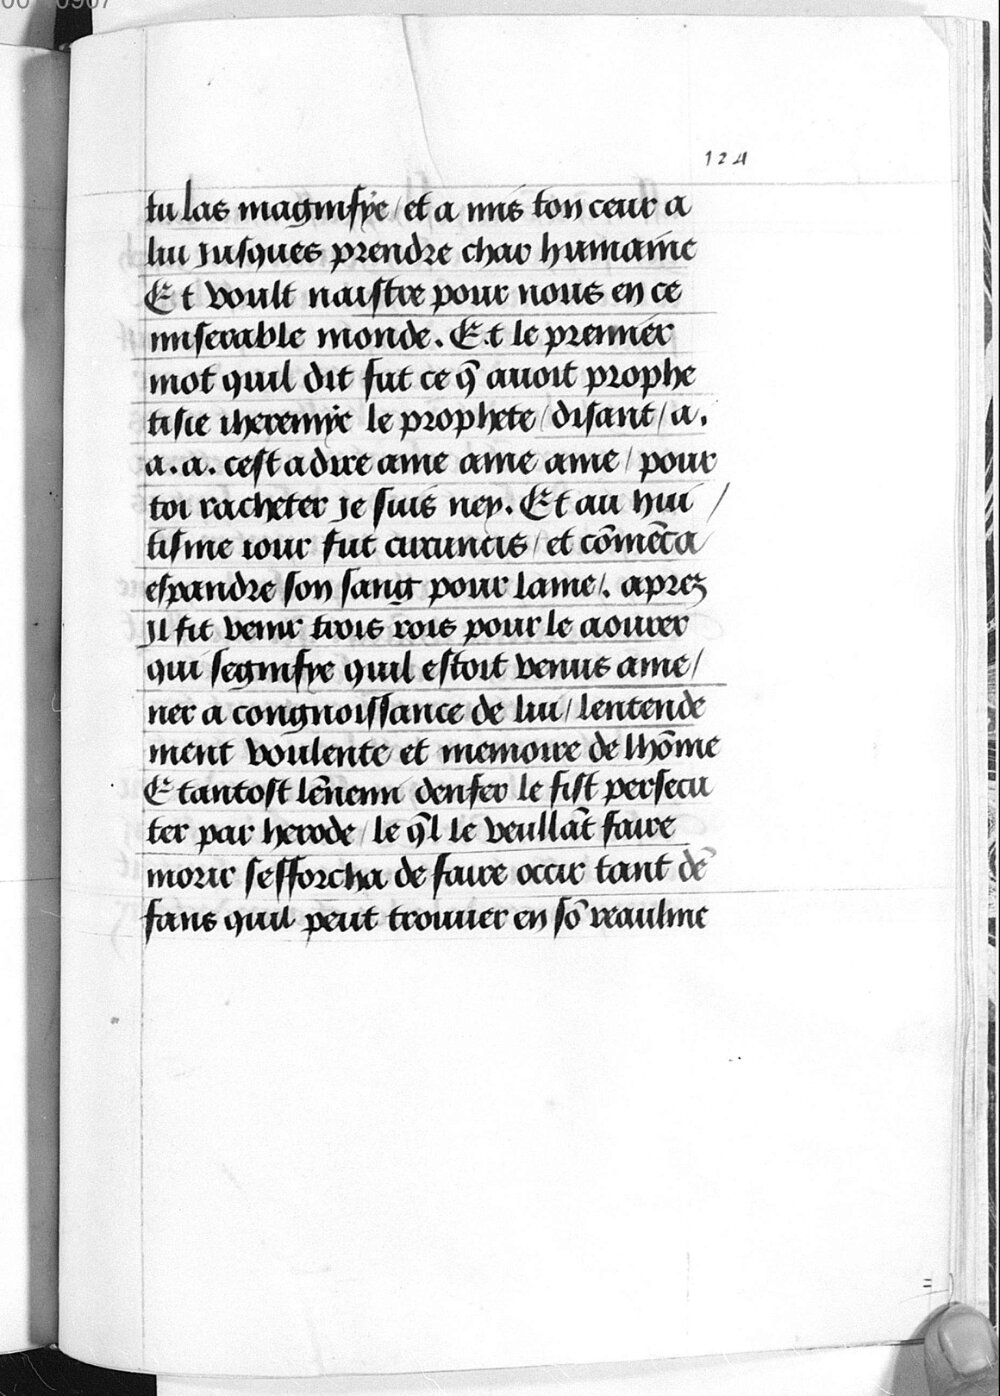 124
tu las magnifye / et a mis ton ceur a
lui Jusques prendre char humaine
Et voult naistre pour nous en ce
miserable monde. Et le premier
mot quil dit fut ce q̃ auoit prophe
tisie iheremye le prophete / disant / a.
a. a. cest a dire ame ame ame / pour
toi racheter Je suis ney. Et au hui /
tisme iour fut circuncis / et cõmẽca
espandre son sang pour lame /. aprez
Jl fit venir trois rois pour le aourer
qui segnifye quil estoit venus ame /
ner a congnoissance de lui / lentende
ment voulente et memoire de lhõme
Et tantost lẽnemi denfer le fist persecu
ter par herode / le q̃l le veullãt faire
morir sefforcha de faire occir tant dẽ
fans quil peut trouuer en sõ reaulme